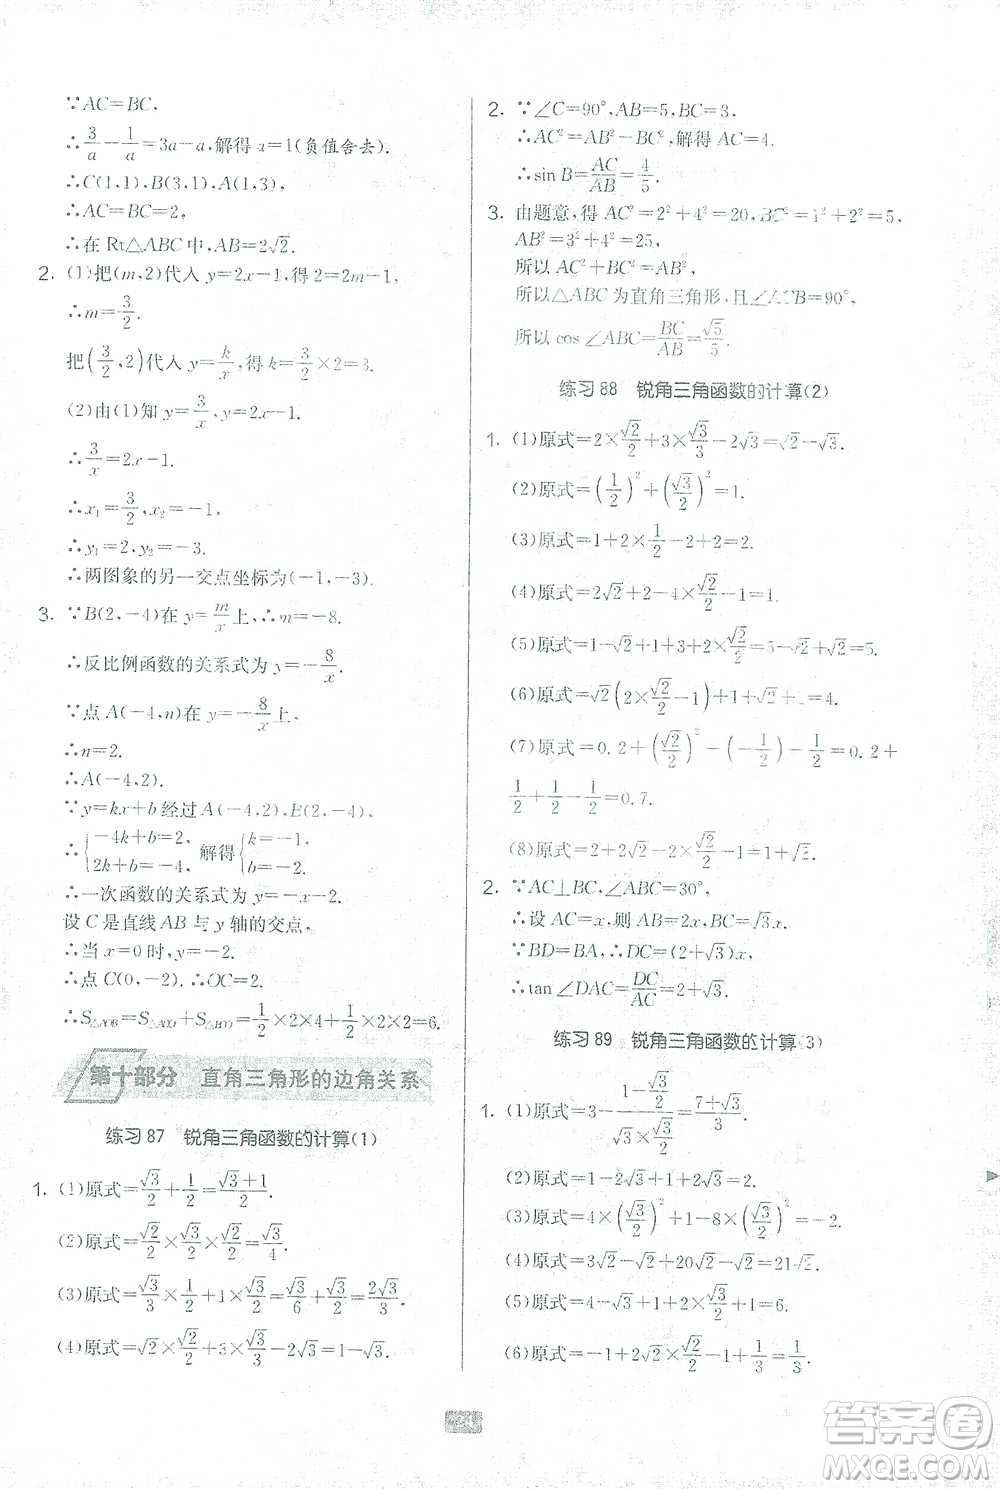 ∵AC=BC.
∴3/a−1/a=3a−a,解得 a=1(负值舍去).
∴C(1,1),B(3,1),A(1,3),
∴AC=BC=2,
∴在 Rt△ABC 中,AB=2√2.
2. (1)把(m,2)代入 y=2x−1,得 2=2m−1,
∴m=3/2.
把(3/2,2)代入 y=k/x,得 k=3/2×2=3.
(2)由(1)知 y=3/x,y=2x−1,
∴3/x=2x−1.
∴x₁=3/2,x₂=−1,
∴y₁=2,y₂=−3.
∴两图象的另一交点坐标为(−1,−3).
3. ∵B(2,−4)在 y=m/x上,∴m=−8.
∴反比例函数的关系式为 y=−8/x.
∵点 A(−4,n)在 y=−8/x上,
∴n=2.
∴A(−4,2).
∵y=kx+b 经过 A(−4,2),B(2,−4),
∴{−4k+b=2, 2k+b=−4, 解得{k=−1, b=−2.
∴一次函数的关系式为 y=−x−2.
设 C 是直线 AB 与 y 轴的交点,
∴当 x=0 时,y=−2.
∴点 C(0,−2).∴OC=2.
∴S△AOB=S△ACO+S△BCO=1/2×2×4+1/2×2×2=6.
第十部分 直角三角形的边角关系
练习 87 锐角三角函数的计算(1)
1. (1)原式=√3/2+1/2=(√3+1)/2.
(2)原式=√2/2×√3/2×√2/2=√3/4.
(3)原式=√3/3×1/2+1×√3/2=√3/6+√3/2=2√3/3.
(4)原式=√2×√2/2+3×√3/3−2√3=1−√3.
2. ∵∠C=90°,AB=5,BC=3.
∴AC²=AB²−BC²,∴AC=4
∴sin B=AC/AB=4/5.
3. 由题意,得 AC²=2²+4²=20,BC²=1²+2²=5,
AB²=3²+4²=25,
所以 AC²+BC²=AB²,
所以△ABC 为直角三角形,且∠ACB=90°,
所以 cos∠ABC=BC/AB=√5/5.
练习 88 锐角三角函数的计算(2)
1. (1)原式=2×√2/2+3×√3/3−2√3=√2−√3.
(2)原式=(1/2)²+(√3/2)²=1.
(3)原式=1+2×1/2−2+2=2.
(4)原式=2√2−4×√2/2+1=1.
(5)原式=1−√2+1+3+2×√2/2=5.
(6)原式=√2(2×√2/2−1)+1+√2+3=4.
(7)原式=0.2+(√2/2)²−(−1/2)−1/2=0.2+
1/2+1/2−1/2=0.7.
(8)原式=2+2−√2+2×√2/2=4.
2. ∵AC⊥BC,∠ABC=30°,
∴设 AC=x,则 AB=2x,BC=√3x.
∵BD=BA,∴DC=(2+√3)x,
∴tan∠DAC=DC/AC=2+√3.
练习 89 锐角三角函数的计算(3)
(2)原式=1−2+√3+1+2−√3=2.
(3)原式=4×(√3/2)²+1−8×(√3/2)²=−2.
(4)原式=3√2−√2+20√2−2√2=20√2.
(5)原式=4−√3−1+√3−2=1.
(6)原式=−1+2√2×√2/2−1+1/3=1/3.
答案圈
MXQE.COM